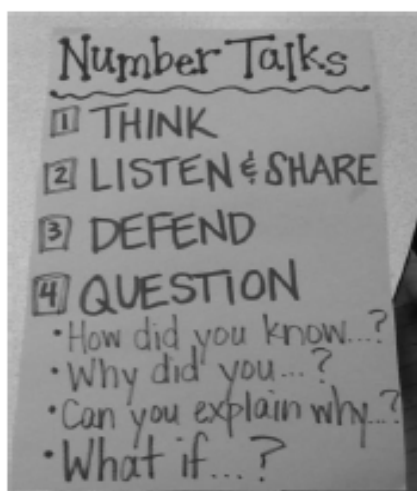 Number Talks
1 THINK
2 LISTEN & SHARE
3 DEFEND
4 QUESTION
• How did you know...?
• Why did you...?
• Can you explain why...?
• What if...?